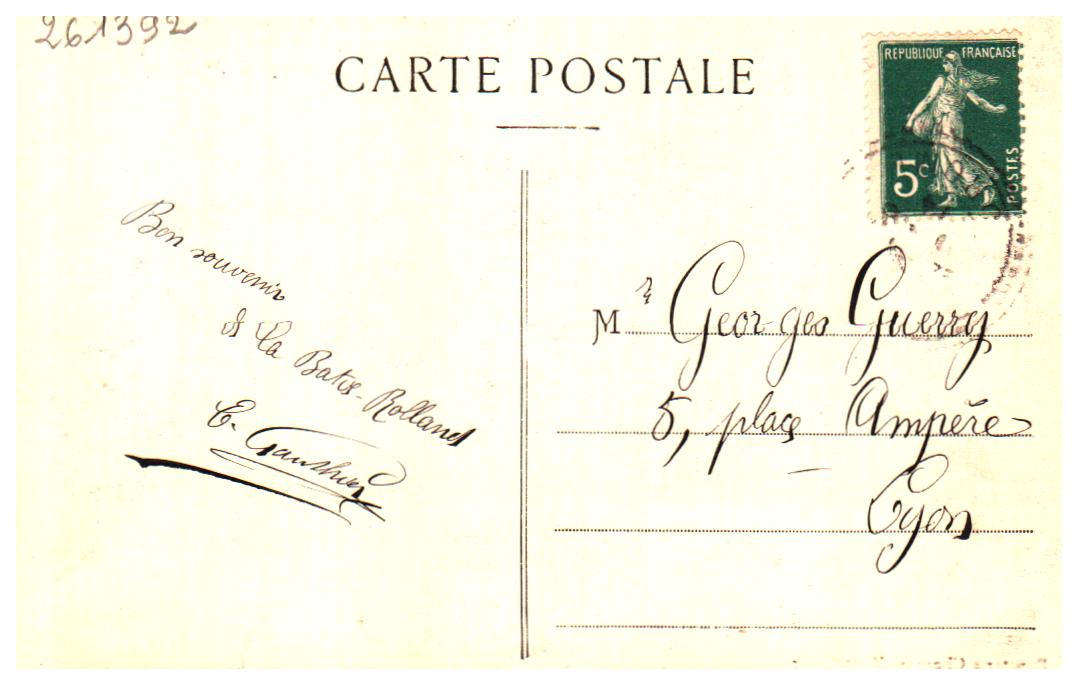 261392
CARTE POSTALE
REPUBLIQUE FRANÇAISE
5c
POSTES
Bon souvenir
de La Batie-Rolland
E. Gauthier
Mr Georges Guerry
5, place Ampère
Lyon